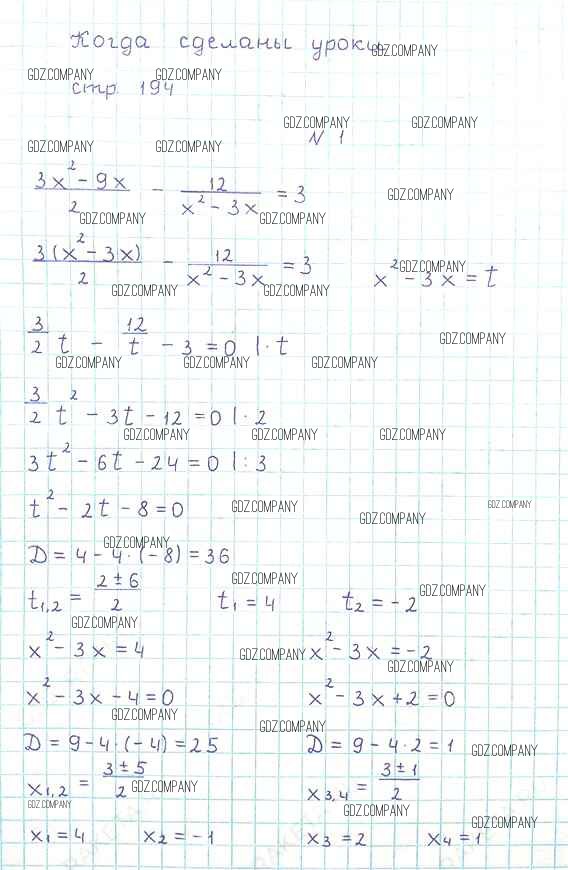 Когда сделаны уроки
GDZ.COMPANY
GDZ.COMPANY GDZ.COMPANY
стр 194
GDZ.COMPANY GDZ.COMPANY
N 1
GDZ.COMPANY GDZ.COMPANY
(3x² - 9x)/2 - 12/(x² - 3x) = 3
GDZ.COMPANY
GDZ.COMPANY GDZ.COMPANY
3(x² - 3x)/2 - 12/(x² - 3x) = 3 x² - 3x = t
GDZ.COMPANY
GDZ.COMPANY GDZ.COMPANY
3/2 t - 12/t - 3 = 0 |· t
GDZ.COMPANY
GDZ.COMPANY GDZ.COMPANY GDZ.COMPANY
3/2 t² - 3t - 12 = 0 |· 2
GDZ.COMPANY GDZ.COMPANY GDZ.COMPANY
3t² - 6t - 24 = 0 |: 3
t² - 2t - 8 = 0
GDZ.COMPANY GDZ.COMPANY GDZ.COMPANY
GDZ.COMPANY
D = 4 - 4·(-8) = 36
GDZ.COMPANY
t1,2 = (2 ± 6)/2 t1 = 4 t2 = -2
GDZ.COMPANY
GDZ.COMPANY
x² - 3x = 4 x² - 3x = -2
GDZ.COMPANY
GDZ.COMPANY
x² - 3x - 4 = 0 x² - 3x + 2 = 0
GDZ.COMPANY
GDZ.COMPANY
D = 9 - 4·(-4) = 25 D = 9 - 4·2 = 1
GDZ.COMPANY
x1,2 = (3 ± 5)/2 x3,4 = (3 ± 1)/2
GDZ.COMPANY
GDZ.COMPANY GDZ.COMPANY
GDZ.COMPANY
x1 = 4 x2 = -1 x3 = 2 x4 = 1